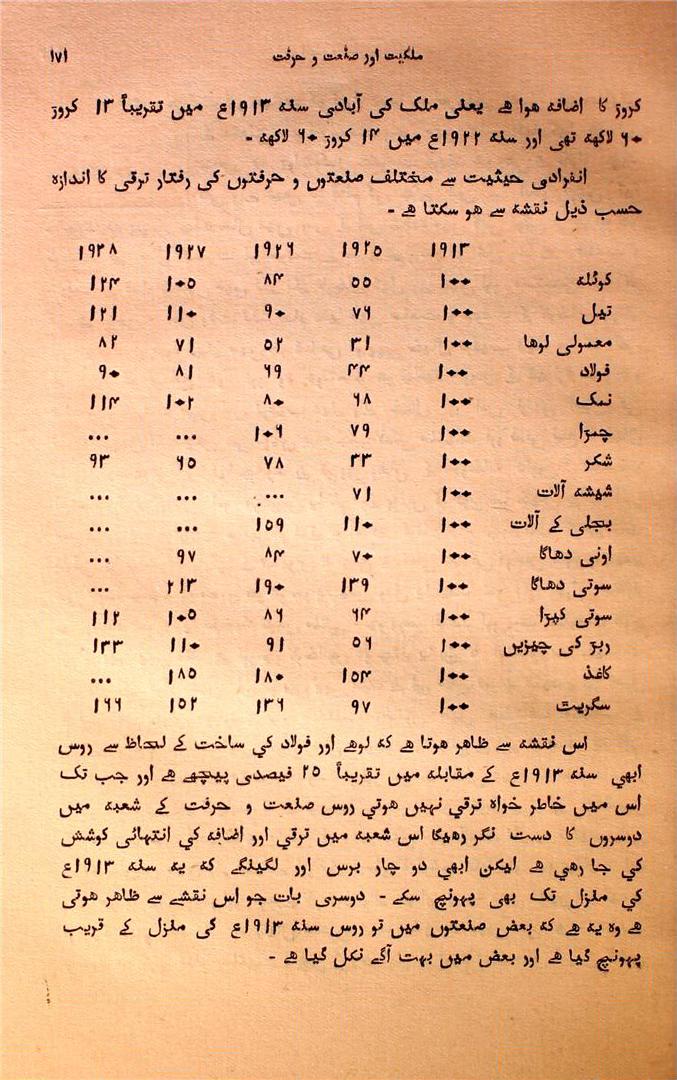 ملکیت اور صنعت و حرفت ۱۷۱
کروڑ کا اضافہ ہوا ہے یعنی ملک کی آبادی سنہ ۱۹۱۳ع میں تقریباً ۱۳ کروڑ
۶۰ لاکھہ تھی اور سنہ ۱۹۲۲ع میں ۱۴ کروڑ ۶۰ لاکھہ ۔
انفرادی حیثیت سے مختلف صنعتوں و حرفتوں کی رفتار ترقی کا اندازہ
حسب ذیل نقشہ سے ہو سکتا ہے ۔
۱۹۱۳ ۱۹۲۵ ۱۹۲۶ ۱۹۲۷ ۱۹۲۸
کوئلہ ۱۰۰ ۵۵ ۸۴ ۱۰۵ ۱۲۴
تیل ۱۰۰ ۷۶ ۹۰ ۱۱۰ ۱۲۱
معمولی لوہا ۱۰۰ ۳۱ ۵۲ ۷۱ ۸۲
فولاد ۱۰۰ ۴۴ ۶۹ ۸۱ ۹۰
نمک ۱۰۰ ۶۸ ۸۰ ۱۰۲ ۱۱۴
چمڑا ۱۰۰ ۷۹ ۱۰۶ ... ...
شکر ۱۰۰ ۳۳ ۷۸ ۶۵ ۹۳
شیشہ آلات ۱۰۰ ۷۱ ... ... ...
بجلی کے آلات ۱۰۰ ۱۱۰ ۱۵۹ ... ...
اونی دھاگا ۱۰۰ ۷۰ ۸۴ ۹۷ ...
سوتی دھاگا ۱۰۰ ۱۳۹ ۱۹۰ ۲۱۳ ...
سوتی کپڑا ۱۰۰ ۶۴ ۸۶ ۱۰۵ ۱۱۲
ربڑ کی چیزیں ۱۰۰ ۵۶ ۹۱ ۱۱۰ ۱۳۳
کاغذ ۱۰۰ ۱۵۴ ۱۸۰ ۱۸۵ ...
سگریٹ ۱۰۰ ۹۷ ۱۳۶ ۱۵۲ ۱۶۶
اس نقشہ سے ظاہر ہوتا ہے کہ لوہے اور فولاد کي ساخت کے لحاظ سے روس
ابھي سنہ ۱۹۱۳ع کے مقابلہ میں تقریباً ۲۵ فیصدی پیچھے ہے اور جب تک
اس میں خاطر خواہ ترقي نہیں ہوتي روس صنعت و حرفت کے شعبہ میں
دوسروں کا دست نگر رہیگا اس شعبہ میں ترقي اور اضافہ کي انتہائي کوشش
کي جا رہي ہے لیکن ابھي دو چار برس اور لگینگے کہ یہ سنہ ۱۹۱۳ع
کي منزل تک بھی پہونچ سکے ۔ دوسری بات جو اس نقشے سے ظاہر ہوتی
ہے وہ یہ ہے کہ بعض صنعتوں میں تو روس سنہ ۱۹۱۳ع کی منزل کے قریب
پہونچ گیا ہے اور بعض میں بہت آگے نکل گیا ہے ۔